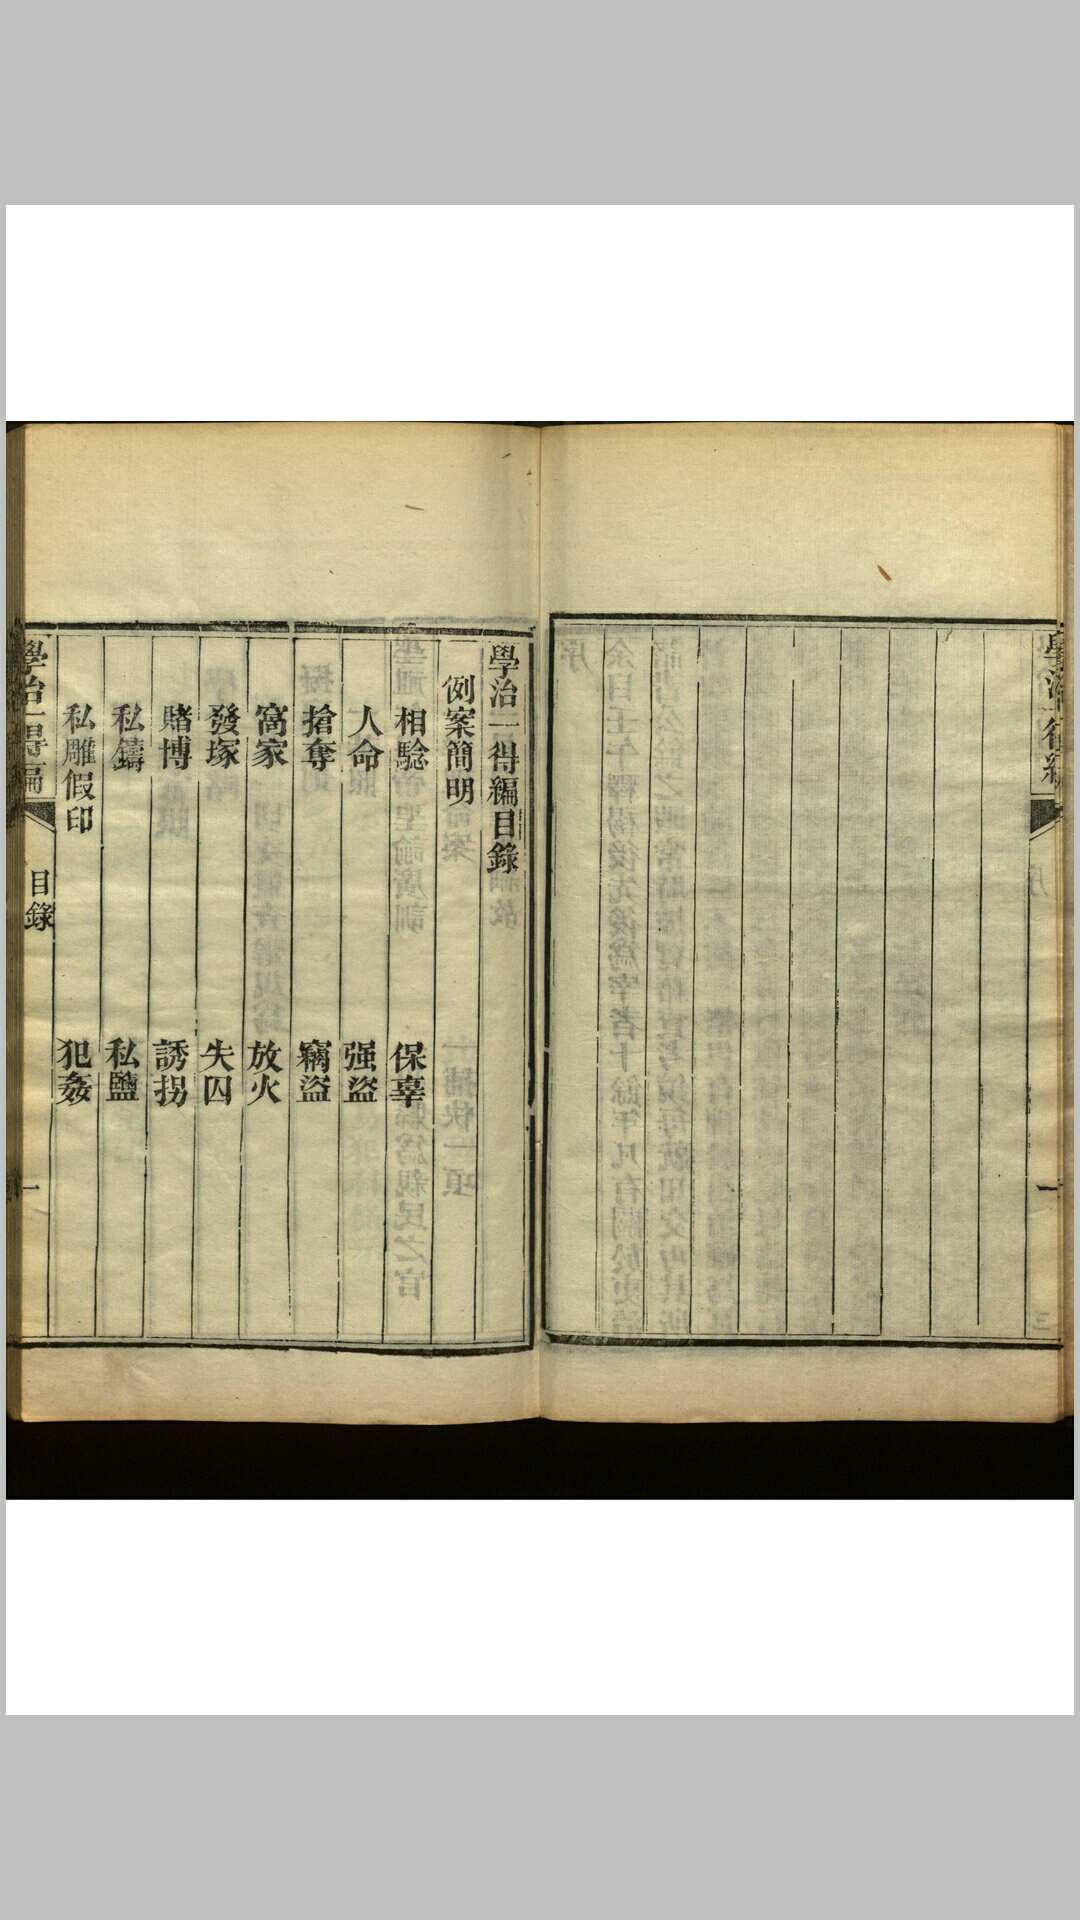 學治一得編
一
學治一得編目錄
例案簡明
相驗 保辜
人命 强盜
搶奪 竊盜
窩家 放火
發塚 失囚
賭博 誘拐
私鑄 私鹽
私雕假印 犯姦
學治一得編 目錄 一